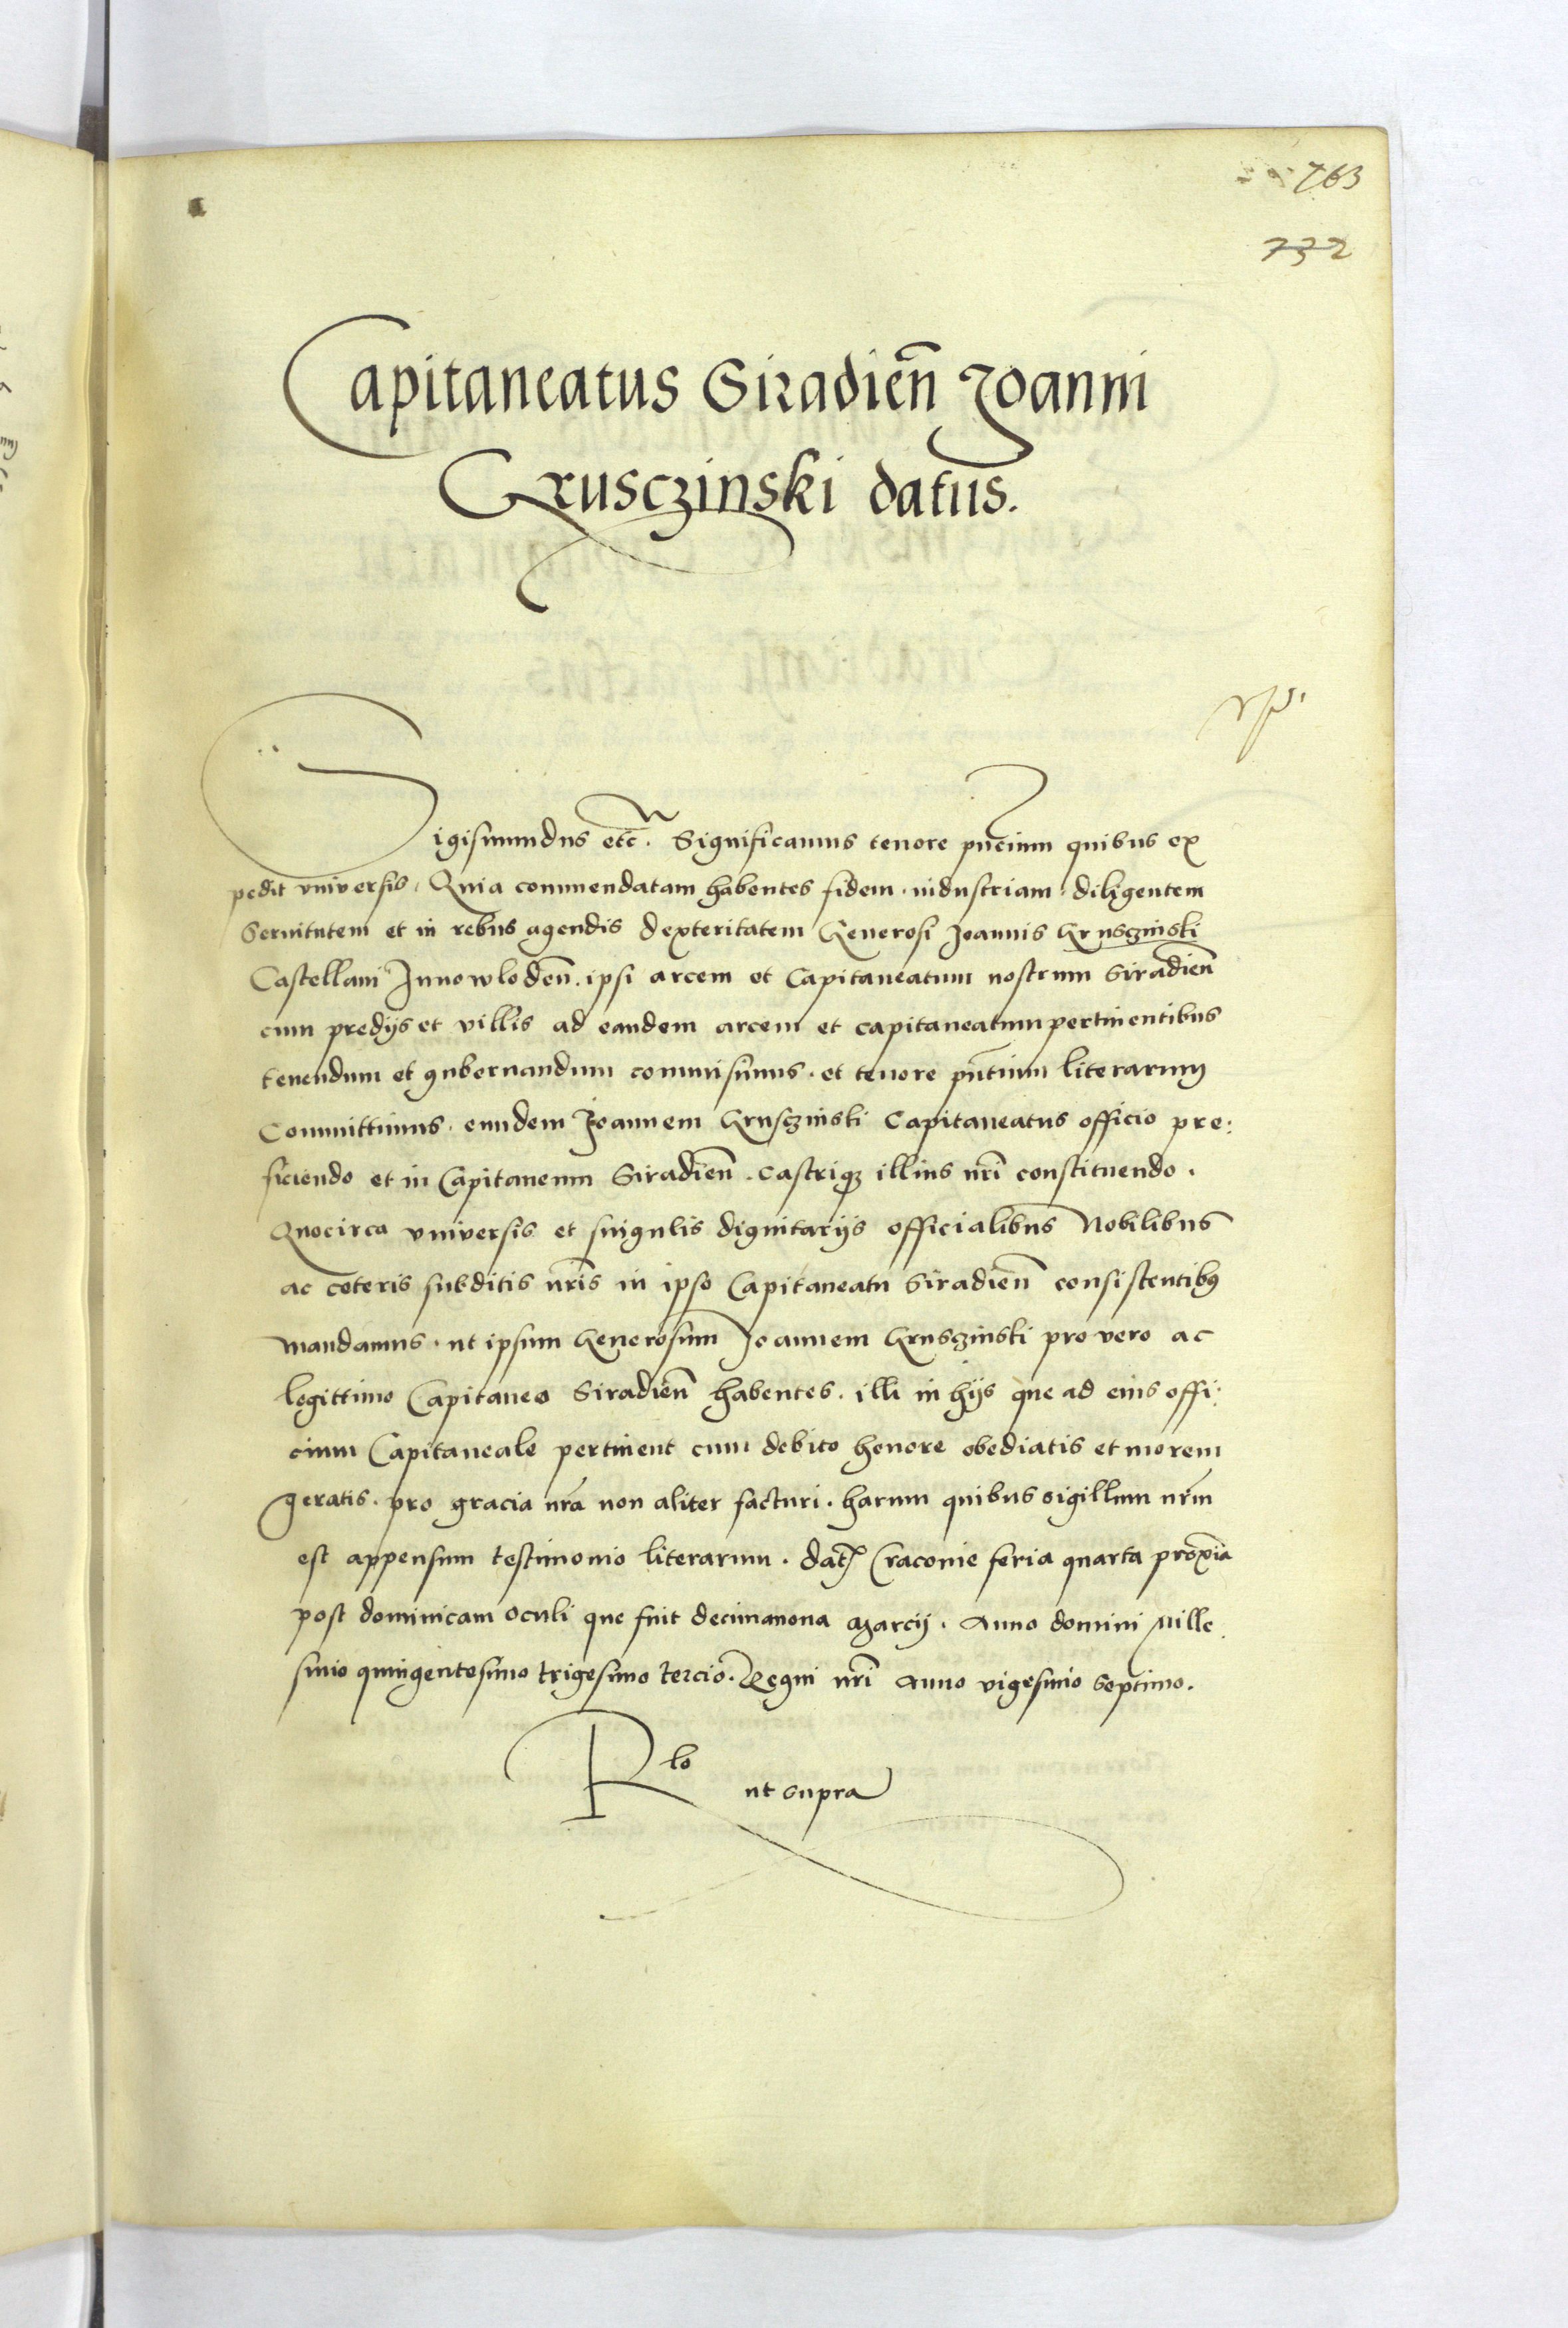 763
732
Capitaneatus Siradien̄ Joanni
Grusczinski datus.
Sigismundus etc̄. Significamus tenore pn̄cium quibus ex
pedit vniversis. Quia commendatam habentes fidem. industriam. diligentem
Servitutem et in rebus agendis dexteritatem Generosi Joannis Grusczinski
Castellani Innowlodēn. ipsi arcem et Capitaneatum nostrum Siradien̄
cum predijs et villis ad eandem arcem et capitaneatum pertinentibus
tenendum et gubernandum commisimus. et tenore pn̄tium literarum
Committimus. eundem Joannem Grusczinski Capitaneatus officio pre:
ficiendo et in Capitaneum Siradien̄. castriqꝫ illius nr̄i constituendo.
Quocirca vniversis et singulis dignitarijs officialibus Nobilibus
ac ceteris subditis nr̄is in ipso Capitaneatu Siradien̄ consistentibꝰ
mandamus. ut ipsum Generosum Joannem Grusczinski pro vero ac
legittimo Capitaneo Siradien̄ habentes. illi in hijs que ad eius offi:
cium Capitaneale pertinent cum debito honore obediatis et morem
geratis. pro gracia nr̄a non aliter facturi. harum quibus sigillum nr̄m
est appensum testimonio literarum. Dat̄ Cracovie feria quarta proxīa
post dominicam Oculi que fuit decimanona Marcij. Anno domini Mille
simo quingentesimo trigesimo tercio. Regni nr̄i Anno vigesimo septimo.
Rlo ut supra